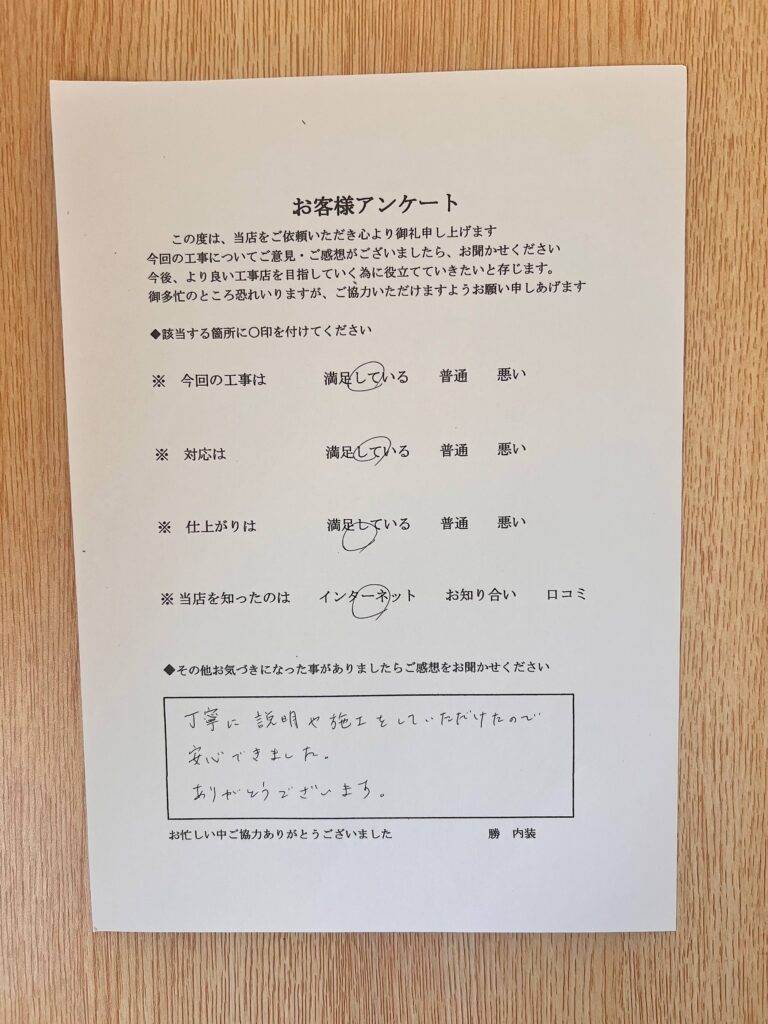 お客様アンケート
この度は、当店をご依頼いただき心より御礼申し上げます
今回の工事についてご意見・ご感想がございましたら、お聞かせください
今後、より良い工事店を目指していく為に役立てていきたいと存じます。
御多忙のところ恐れいりますが、ご協力いただけますようお願い申しあげます
◆該当する箇所に〇印を付けてください
※ 今回の工事は 満足している 普通 悪い
※ 対応は 満足している 普通 悪い
※ 仕上がりは 満足している 普通 悪い
※当店を知ったのは インターネット お知り合い 口コミ
◆その他お気づきになった事がありましたらご感想をお聞かせください
丁寧に説明や施工をしていただけたので
安心できました。
ありがとうございます。
お忙しい中ご協力ありがとうございました 勝 内装